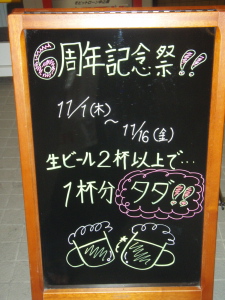 6周年記念祭!!
11/1(木)
〜11/16(金)
生ビール2杯以上で…
1杯分タダ!!